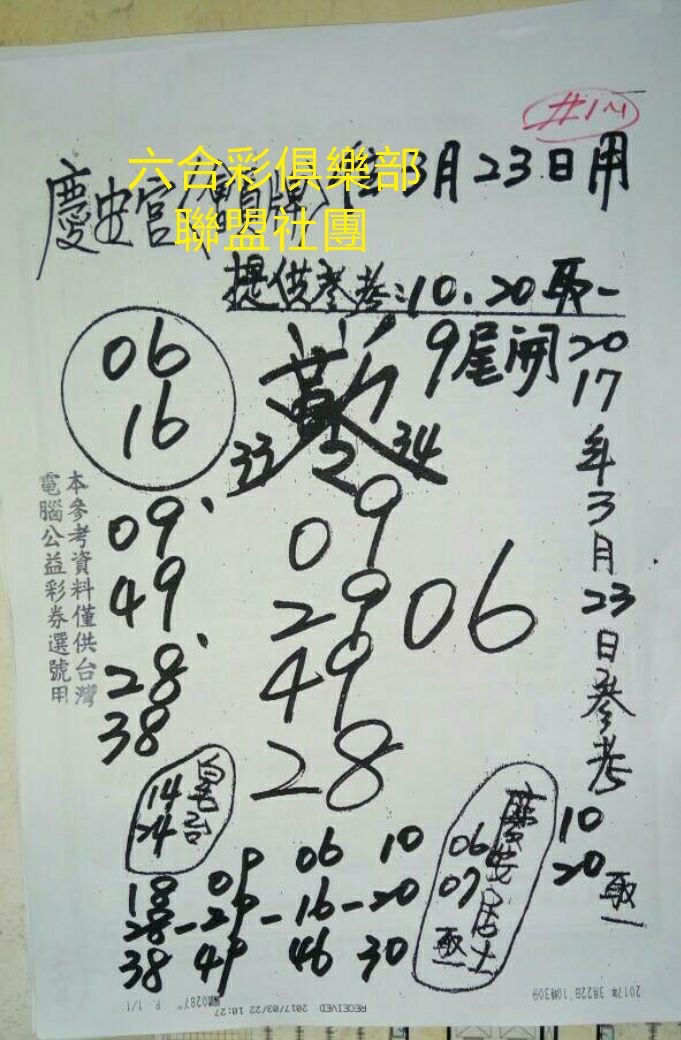 #1M
六合彩俱樂部
聯盟社團
慶安宮
3月23日用
提供參考:10.20取一
9尾開
06
16
33
34
09
49
28
38
09
29
49
28
06
2017年3月23日參考
10
20
取一
本參考資料僅供台灣
電腦公益彩券選號用
14
24
06
07
取一
18 09 06 10
28-29-16-20
38 49 46 30
2017年 3月22日 10時30分
RECEIVED 2017/03/22 10:27
P. 1/1